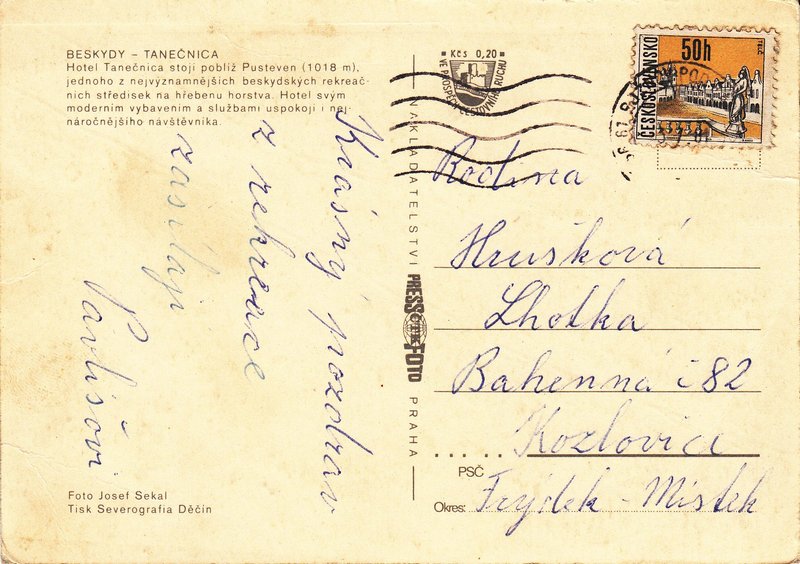 BESKYDY – TANEČNICA
Hotel Tanečnica stojí poblíž Pusteven (1018 m),
jednoho z nejvýznamnějších beskydských rekreač-
ních středisek na hřebenu horstva. Hotel svým
moderním vybavením a službami uspokojí i nej-
náročnějšího návštěvníka.
Krásný pozdrav
z rekreace
zasílají
Pavlišovi
Foto Josef Sekal
Tisk Severografia Děčín
NAKLADATELSTVÍ PRESSFOTO PRAHA
ČTK
Kčs 0,20
VE PROSPĚCH CESTOVNÍHO RUCHU
ČESKOSLOVENSKO
50h
TELČ
Rodina
Hrušková
Lhotka
Bahenná č 82
Kozlovice
PSČ
Okres: Frýdek - Místek